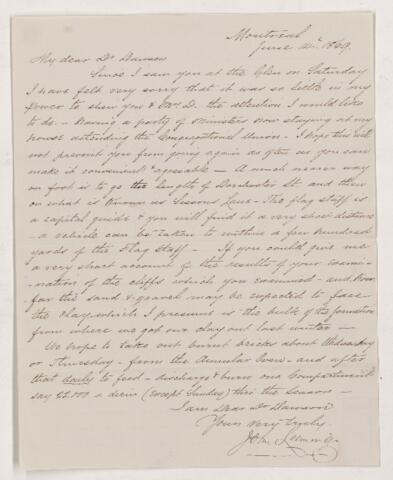 Montreal
June 14th 1869.
My dear Dr Dawson
Since I saw you at the Glen on Saturday
I have felt very sorry that it was so little in my
power to shew you & Mrs D. the attention I would like
to do - having a party of Ministers now staying at my
house attending the Congregational Union - I hope this will
not prevent you from going again as often as you can
make it convenient & agreeable - A much nearer way
on foot is to go the length of Dorchester St and then
on what is known as Lane - The flag staff is
a capital guide & you will find it a very short distance
- a vehicle can be taken to within a few hundred
yards of the Flag Staff - If you could give me
a very short account of the results of your exami-
nation of the cliffs which you examined - and how
far the sand & gravel may be expected to face
the clay which I presume is the bulk of the formation
from where we got our clay out last winter -
We hope to take out burnt bricks about Wednesday
or Thursday - from the Annular Oven - and after
that daily to feed - discharge & burn one Compartment
say 22.000 a diem (except Sunday) thro the Season -
I am Dear Dr Dawson
Yours very truly
John